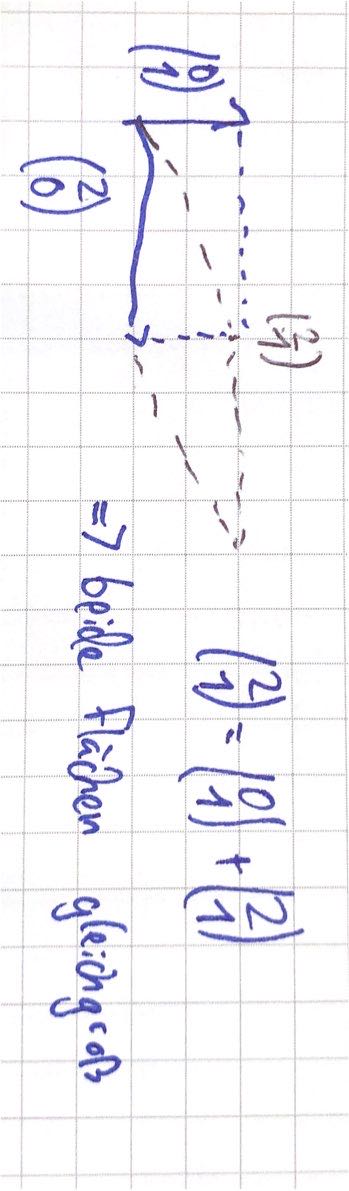 (2 1)
(0 1)
(2 0)
(2 1) = (0 1) + (2 1)
=> beide Flächen gleichgroß